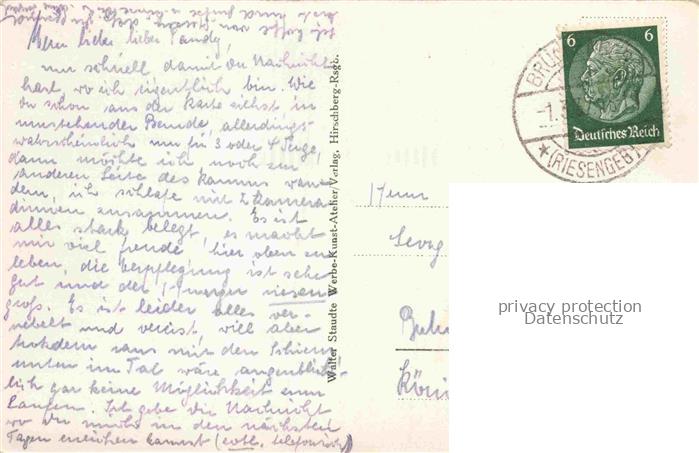 Mein lieber lieber Pandy,
nur schnell damit Du Nachricht
hast, wo ich eigentlich bin. Wie
Du schon aus der Karte siehst in
umstehender Baude, allerdings
wahrscheinlich nur für 3 oder 4 Tage,
dann möchte ich noch zur
anderen Seite des Kammes wan-
dern, ich schlafe mit 2 Kamera-
dinnen zusammen. Es ist
alles stark belegt, es macht
mir viel Freude hier oben zu
leben, die Verpflegung ist sehr
gut und der Hunger riesen
groß. Es ist leider alles ver-
nebelt und vereist, will aber
trotzdem raus mit den Schiern
unten im Tal wäre augenblick-
lich gar keine Möglichkeit zum
Laufen. Ich gebe Dir Nachricht
wo Du mich in den nächsten
Tagen erreichen kannst (evtl. telefonisch)
Walter Staudte Werbe-Kunst-Atelier/Verlag, Hirschberg-Rsgb.
6 6
Deutsches Reich
BRÜ
-1.
*(RIESENGEB)
Herrn
Georg
Berlin
Köni
privacy protection
Datenschutz